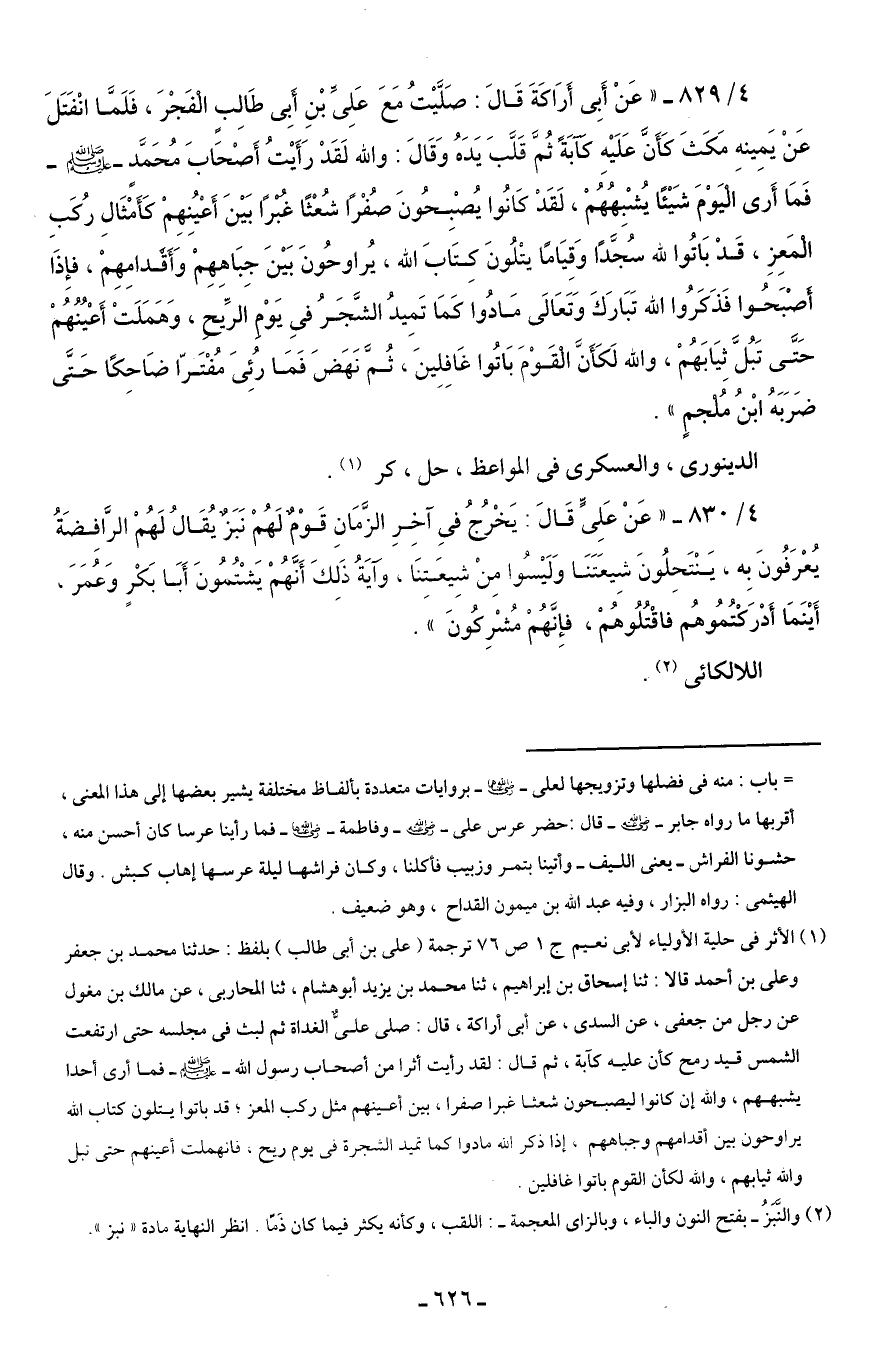 ٤/ ٨٢٩ ـ « عَنْ أَبِى أَرَاكَةَ قَـالَ : صَلَّيْتُ مَعَ عَلِىِّ بْنِ أَبِى طَالِبٍ الْفَجْرَ ، فَلَمَّا انْفَتَلَ
عَنْ يَمِينِهِ مَكَثَ كَأَنَّ عَلَيْهِ كَآبَةً ثُمَّ قَلَّبَ يَدَهُ وَقَالَ : والله لَقَدْ رَأَيْتُ أَصْحَابَ مُحَمَّدٍ ـ ﷺ ـ
فَمَا أَرى الْيَوْمَ شَيْئًا يُشْبِهُهُمْ ، لَقَدْ كَانُوا يُصْبِـحُونَ صُفْرًا شُعْثًا غُبْرًا بَيْنَ أَعْيُنِهِمْ كَأَمْثَالِ رُكَبِ
الْمَعِزِ ، قَـدْ بَاتُوا لله سُجَّدًا وَقِيَامًا يَتْلُونَ كِتَابَ الله ، يُراوِحُونَ بَيْنَ جِبَاهِهِمْ وَأَقْدَامِهِمْ ، فَإِذَا
أَصْبَحُـوا فَذَكَرُوا الله تَبَارَكَ وَتَعَالَى مَـادُوا كَمَا تَمِيدُ الشَّجَـرُ فِى يَوْمِ الرِّيحِ ، وَهَمَلَتْ أَعْيُنُهُمْ
حَتَّـى تَبُلَّ ثِيَابَهُمْ ، والله لَكَأَنَّ الْقَـوْمَ بَاتُوا غَافِلِينَ ، ثُـمَّ نَهَضَ فَمَـا رُئِىَ مُفْتَـرّا ضَاحِكًا حَتَّـى
ضَرَبَهُ ابْنُ مُلْجِمٍ » .
الدينورى ، والعسكرى فى المواعظ ، حل ، كر (١) .
٤/ ٨٣٠ ـ « عَنْ عَلِىٍّ قَـالَ : يَخْرُجُ فِى آخِـرِ الزَّمَانِ قَـوْمٌ لَهُمْ نَبَزٌ يُقَـالُ لَهُمْ الرَّافِـضَةُ
يُعْرَفُونَ بِهِ ، يَـنْتَحِلُونَ شِيعَتَنَـا وَلَيْسُوا مِنْ شِيعَـتِنَا ، وَآيَةُ ذَلِكَ أَنَّهُمْ يَشْتُمُونَ أَبَـا بَكْرٍ وَعُمَرَ ،
أَيْنَمَا أَدْرَكْتُمُوهُم فَاقْتُلُوهُمْ ، فَإِنَّهُمْ مُشْرِكُونَ » .
اللالكائى (٢) .
= باب : منه فى فضلها وتزويجها لعلى ـ رضي الله عنهما ـ بروايات متعددة بألفـاظ مختلفة يشير بعضها إلى هذا المعنى ،
أقربها ما رواه جابر ـ رضي الله عنه ـ قال :حضر عرس على ـ رضي الله عنه ـ وفاطمة ـ رضي الله عنها ـ فما رأينا عرسا كان أحسن منه ،
حشـونا الفراش ـ يعنى اللـيف ـ وأتينا بتمـر وزبيب فأكلنا ، وكـان فراشهـا ليلة عرسـها إهاب كـبش . وقال
الهيثمى : رواه البزار ، وفيه عبد الله بن ميمون القداح ، وهو ضعيف .
(١) الأثر فى حلية الأولياء لأبى نعـيم ج ١ ص ٧٦ ترجمة ( على بن أبى طالب ) بلفظ : حدثنا محمـد بن جعفر
وعلى بن أحمد قالا : ثنا إسحاق بن إبراهيم ، ثنا محمـد بن يزيد أبوهشام ، ثنا المحاربى ، عن مالك بن مغول
عن رجل من جعفى ، عن السدى ، عن أبى أراكة ، قال : صلى علـىٌّ الغداة ثم لبث فى مجلسه حتى ارتفعت
الشمس قـيد رمح كأن عليـه كآبة ، ثم قـال : لقد رأيت أثرا من أصحـاب رسول الله ـ ﷺ ـ فمـا أرى أحدا
يشبهـهم ، والله إن كانوا ليصبـحون شعثـا غبرا صفرا ، بين أعـينهم مثل ركب المعز ؛ قد باتوا يـتلون كتاب الله
يراوحون بين أقدامهم وجباههم ، إذا ذكر الله مادوا كما تميد الشجرة فى يوم ريح ، فانهملت أعينهم حتى تبل
والله ثيابهم ، والله لكأن القوم باتوا غافلين .
(٢) والنَّبَزُ ـ بفتح النون والباء ، وبالزاى المعجمة ـ : اللقب ، وكأنه يكثر فيما كان ذَمّا . انظر النهاية مادة « نبز ».
ـ ٦٢٦ ـ